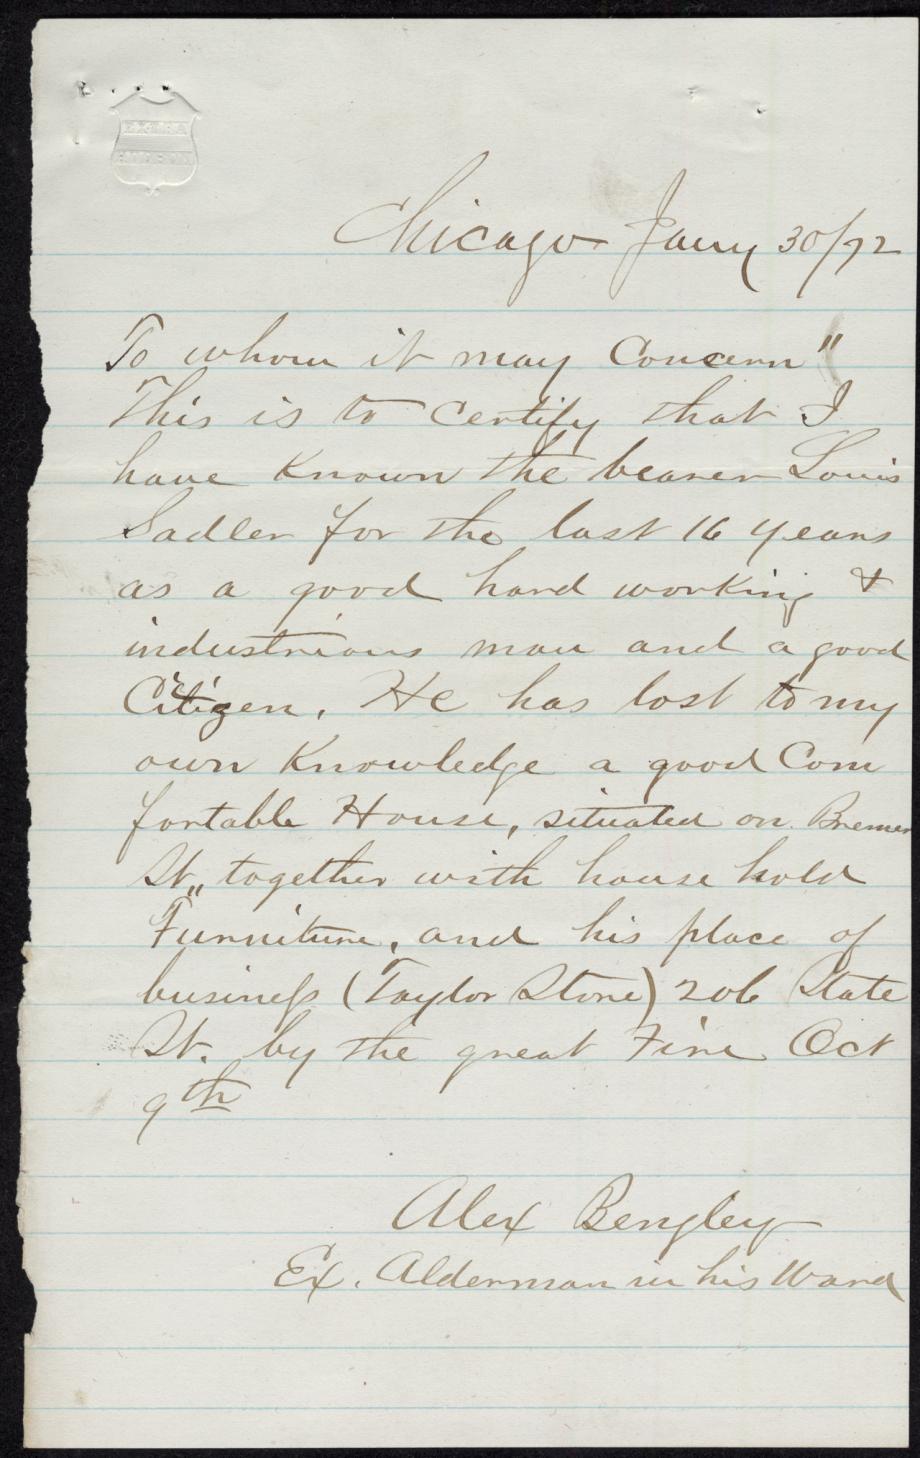 Chicago Jany 30/72
To whom it may Concern"
This is to certify that I
have Known the bearer Louis
Sadler for the last 16 years
as a good hard working &
industrious man and a good
Citizen. He has lost to my
own Knowledge a good Com
fortable House, situated on Bremer
St,, together with house hold
Furniture, and his place of
business (Taylor Store) 206 State
St. by the great Fire Oct
9th
Alex Bengley
Ex. Alderman in his Ward